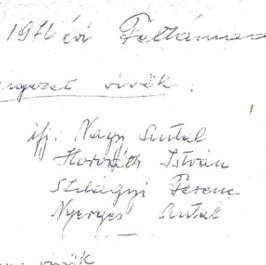 1971 évi Feltámad
vívők
ifj. Nagy Antal
Horváth István
Szilágyi Ferenc
Nyerges Antal
vívők